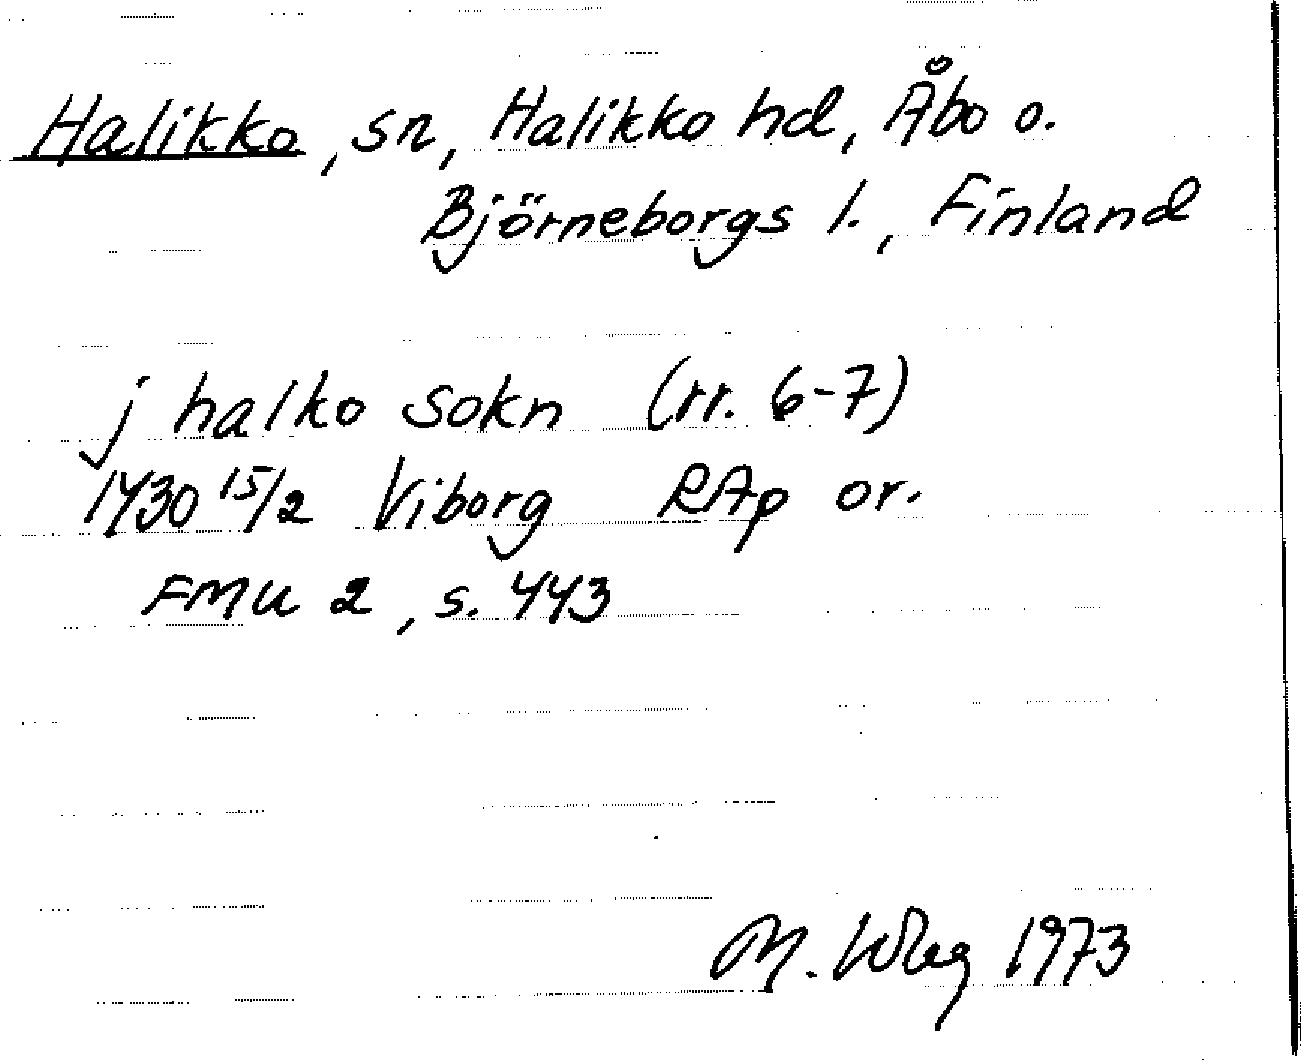 Halikko, sn, Halikko hd, Åbo o.
Björneborgs l., Finland
j halko sokn (rr. 6-7)
1430 15/2 Viborg RAp or.
FMU 2, s. 443
M. Wbg 1973